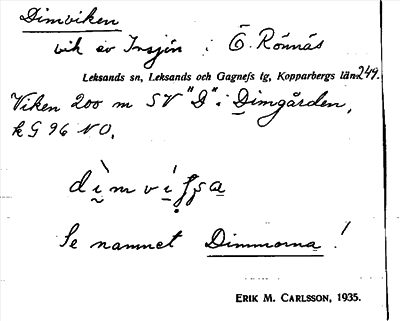 Dimviken
vik av Insjön i Ö. Rönnäs
Leksands sn, Leksands och Gagnefs tg, Kopparbergs län 249.
Viken 200 m SV "D" i Dimgården,
k G 96 NO.
Se namnet Dimmorna !
ERIK M. CARLSSON, 1935.